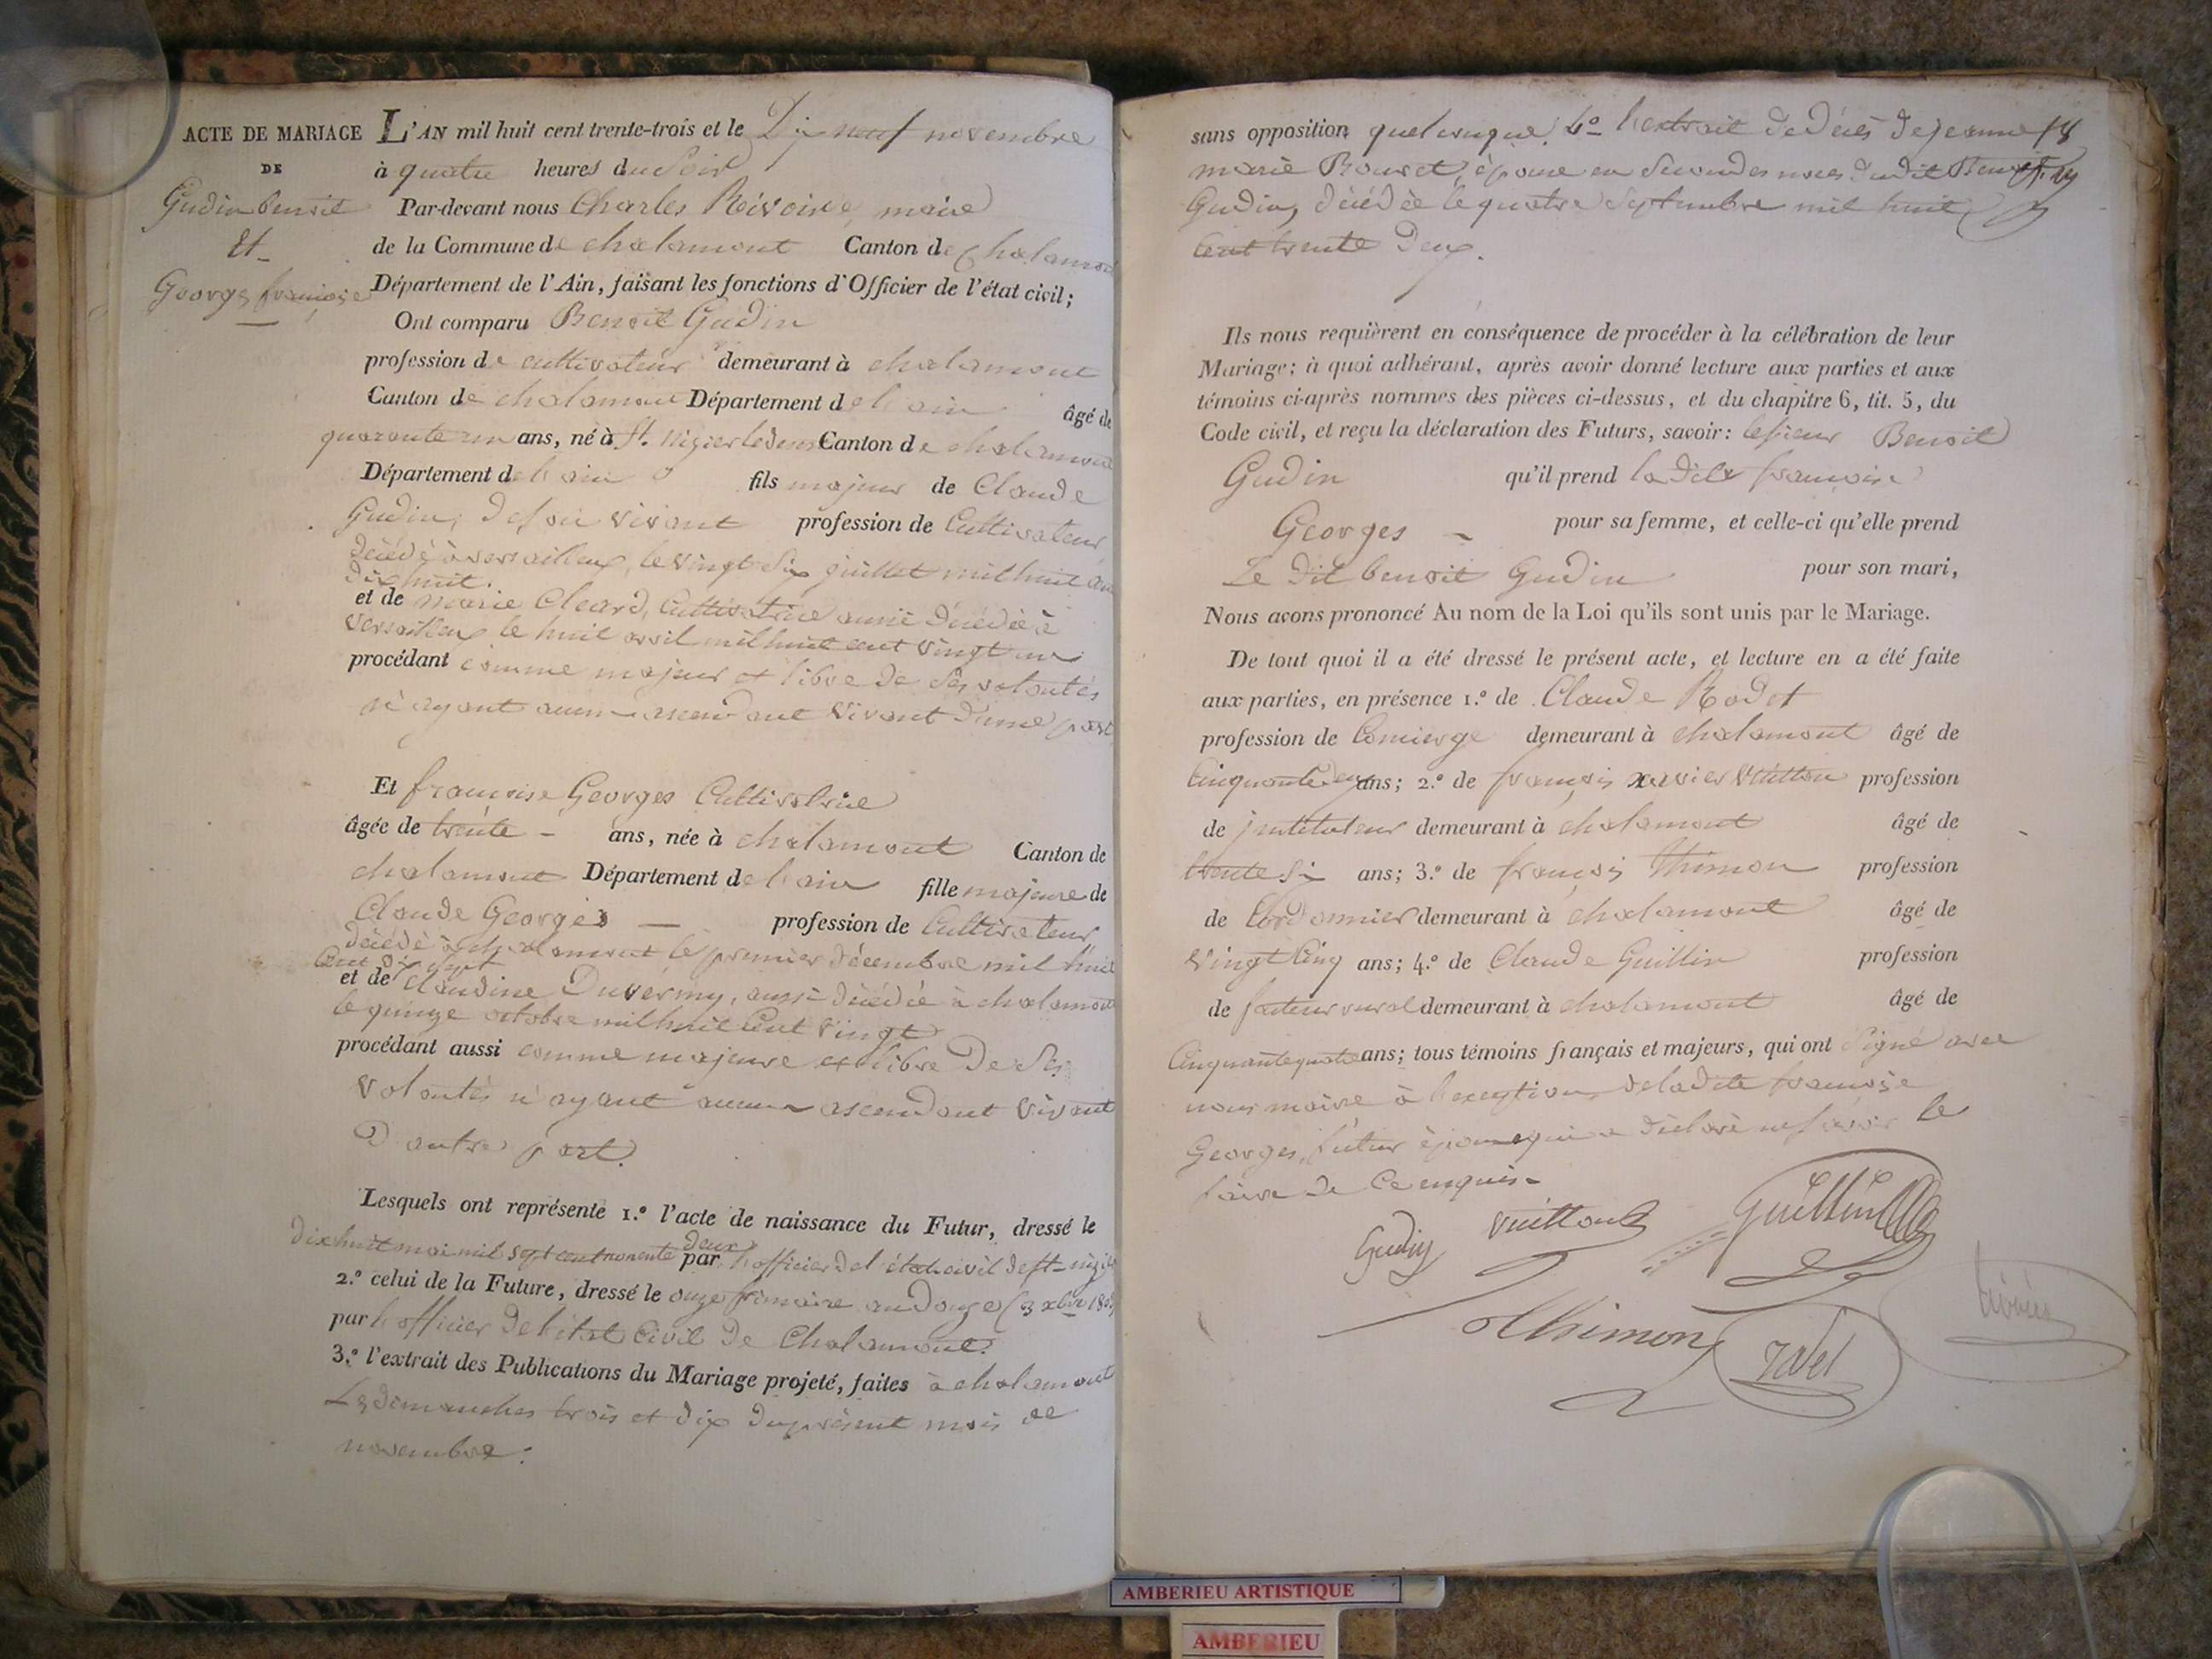 ACTE DE MARIAGE
DE
Gudin benoit
Et
Georges françoise
L'AN mil huit cent trente-trois et le Dix neuf novembre
à quatre heures du Soir
Par-devant nous Charles Rivoire, maire
de la Commune de chalamont Canton de Chalamont
Département de l'Ain, faisant les fonctions d'Officier de l'état civil;
Ont comparu Benoit Gudin
profession de cultivateur demeurant à chalamont
Canton de chalamont Département de l'ain âgé de
quarante un ans, né à St. Nizier le desert Canton de chalamont
Département de l'ain fils majeur de Claude
Gudin, de son vivant profession de Cultivateur
décédé à versailleux, le vingt Six juillet mil huit cent
dix huit.
et de marie Cleard, Cultivatrice aussi décédée à
versailleux le huit avril mil huit cent vingt un
procédant comme majeur et libre de Ses volontés
n'ayant aucun ascendant vivant d'une part
Et françoise Georges Cultivatrice
âgée de trente - ans, née à chalamont Canton de
chalamont Département de l'ain fille majeure de
Claude Georges — profession de Cultivateur
décédé à chalamont le premier décembre mil huit
Cent Dix Sept
et de Claudine Duverny, aussi décédée à chalamont
le quinze octobre mil huit Cent vingt
procédant aussi comme majeure et libre De Ses
volontés n'ayant aucun ascendant vivant
D'autre part.
Lesquels ont représenté 1.º l'acte de naissance du Futur, dressé le
dix huit mai mil sept cent nonante deux par l'officier de l'état civil de St. nizier
2.º celui de la Future, dressé le onze frimaire an Douze (3 xbre 1803)
par l'officier De l'état Civil de Chalamont.
3.º l'extrait des Publications du Mariage projeté, faites à chalamont
Les dimanches trois et dix du présent mois de
novembre.
sans opposition quelconque. 4º l'extrait de décès de jeanne
marie Bouvet, épouse en Secondes noces dudit Benoit
Gudin, décédée le quatre Septembre mil huit
Cent trente Deux.
Ils nous requièrent en conséquence de procéder à la célébration de leur
Mariage; à quoi adhérant, après avoir donné lecture aux parties et aux
témoins ci-après nommés des pièces ci-dessus, et du chapitre 6, tit. 5, du
Code civil, et reçu la déclaration des Futurs, savoir: le sieur Benoit
Gudin qu'il prend la dite françoise
Georges - pour sa femme, et celle-ci qu'elle prend
Le dit benoit Gudin pour son mari,
Nous avons prononcé Au nom de la Loi qu'ils sont unis par le Mariage.
De tout quoi il a été dressé le présent acte, et lecture en a été faite
aux parties, en présence 1.º de Claude Rodet
profession de Concierge demeurant à chalamont âgé de
Cinquante deux ans; 2.º de françois xavier Vuitton profession
de jnstituteur demeurant à chalamont âgé de
trente Six ans; 3.º de françois Thimon profession
de Cordonnier demeurant à chalamont âgé de
vingt Cinq ans; 4.º de Claude Guillin profession
de facteur rural demeurant à chalamont âgé de
Cinquante quatre ans; tous témoins français et majeurs, qui ont Signé avec
nous maire à l'exception de la dite françoise
Georges, future épouse qui a déclaré ne savoir le
faire de Ce enquise
Gudin Vuitton Guillin
Thimon Rodet Rivoire
AMBERIEU ARTISTIQUE
AMBERIEU